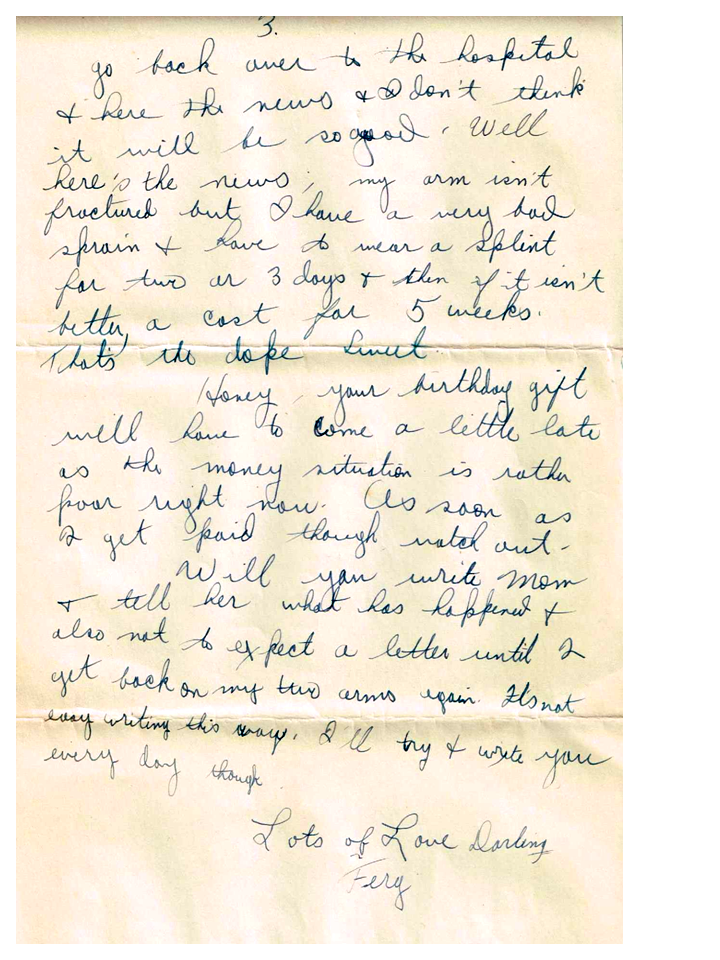 3.
go back over to the hospital
& here the news & I don't think
it will be so good. Well
here's the news; my arm isn't
fractured but I have a very bad
sprain & have to wear a splint
for two or 3 days & then if it isn't
better, a cast for 5 weeks.
That's the dope Sweet.
Honey, your birthday gift
will have to come a little late
as the money situation is rather
poor right now. As soon as
I get paid though watch out-
Will you write Mom
& tell her what has happened &
also not to expect a letter until I
get back on my two arms again. Its not
easy writing this way. I'll try & write you
every day though
Lots of Love Darling
Ferg